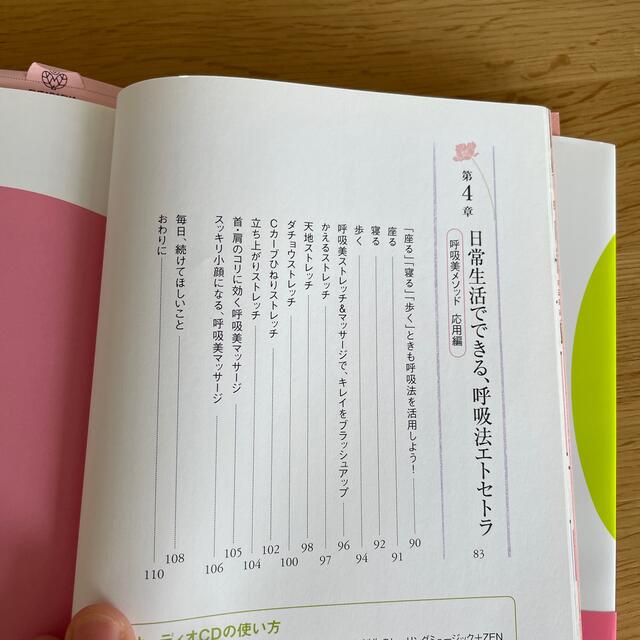 第4章 日常生活でできる、呼吸法エトセトラ 83
呼吸美メソッド 応用編
「座る」「寝る」「歩く」ときも呼吸法を活用しよう! 90
座る 91
寝る 92
歩く 94
呼吸美ストレッチ&マッサージで、キレイをブラッシュアップ 96
かえるストレッチ 97
天地ストレッチ 98
ダチョウストレッチ 100
Cカーブひねりストレッチ 102
立ち上がりストレッチ 104
首・肩のコリに効く呼吸美マッサージ 105
スッキリ小顔になる、呼吸美マッサージ 106
毎日、続けてほしいこと 108
おわりに 110
ーディオCDの使い方
リングミュージック+ZEN